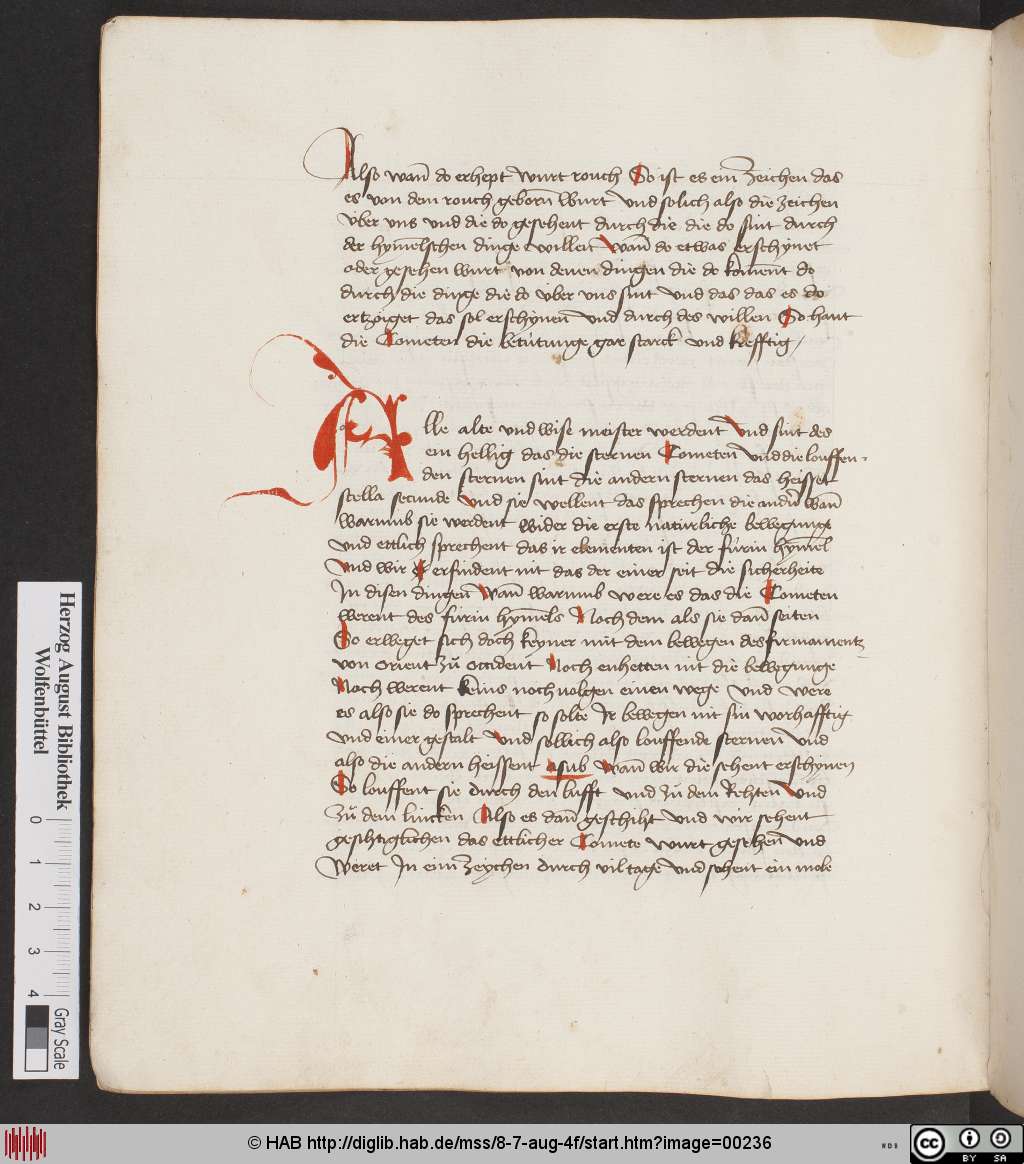 Also wan̄ do erhept wurt rouch So ist es ein Zeichen das
es von dem rouch geborn̄ wurt vnd solich also die zeichen
vber vns vnd die do gesehent durch die die do sint durch
der hym̄elschen dinge willen wan̄ do etwas erschynet
oder gesehen wurt von denen dingen die do kom̄ent do
durch die dinge die do vber vns sint vnd das das es do
ertzoiget das sol erschynen̄ vnd durch des willen So hant
die Cometen die betútunge gar starck vnd krefftig /
Alle alte vnd wise meister werdent vnd sint des
ein hellig das die sternen Cometen̄ vnd die louffen-
den sternen sint die andern sternen das heisset
stella secunde vnd sie wellent das sprechen die andn̄ wan̄
warumb sie werdent wider die erste natúrliche bewegunge
vnd ettlich sprechent das ir elementen ist der fúrin hym̄el
vnd wir erfindent nit das der einer seit die sicherheite
In disen dingen̄ wan̄ warumb were es das die Cometen
werent des fúrin hym̄els Noch dem als sie dan̄ seiten
So erweget sich doch keyner mit dem bewegen des firmamentz
von orient zů occident Noch enhetten nit die bewegunge
Noch werent keins noch uolgen einen wege vnd were
es also sie do sprechent so solte Ir bewegen nit sin worhafftig
vnd einer gestalt vnd sollich also louffende sternen̄ vnd
also die andern heissent asub wan̄ wir die sehent erschynen
So louffent sie durch den lufft vnd zů dem Rehten vnd
zů dem lincken Also es dan̄ geschiht vnd wir sehent
gesihtiglichen das ettlicher Comete wurt gesehen̄ vnd
weret In eim Zeychen durch vil tage vnd sehent ein mole
Herzog August Bibliothek
Wolfenbüttel
0 1 2 3 4
Gray Scale
© HAB http://diglib.hab.de/mss/8-7-aug-4f/start.htm?image=00236
WDB
cc BY SA